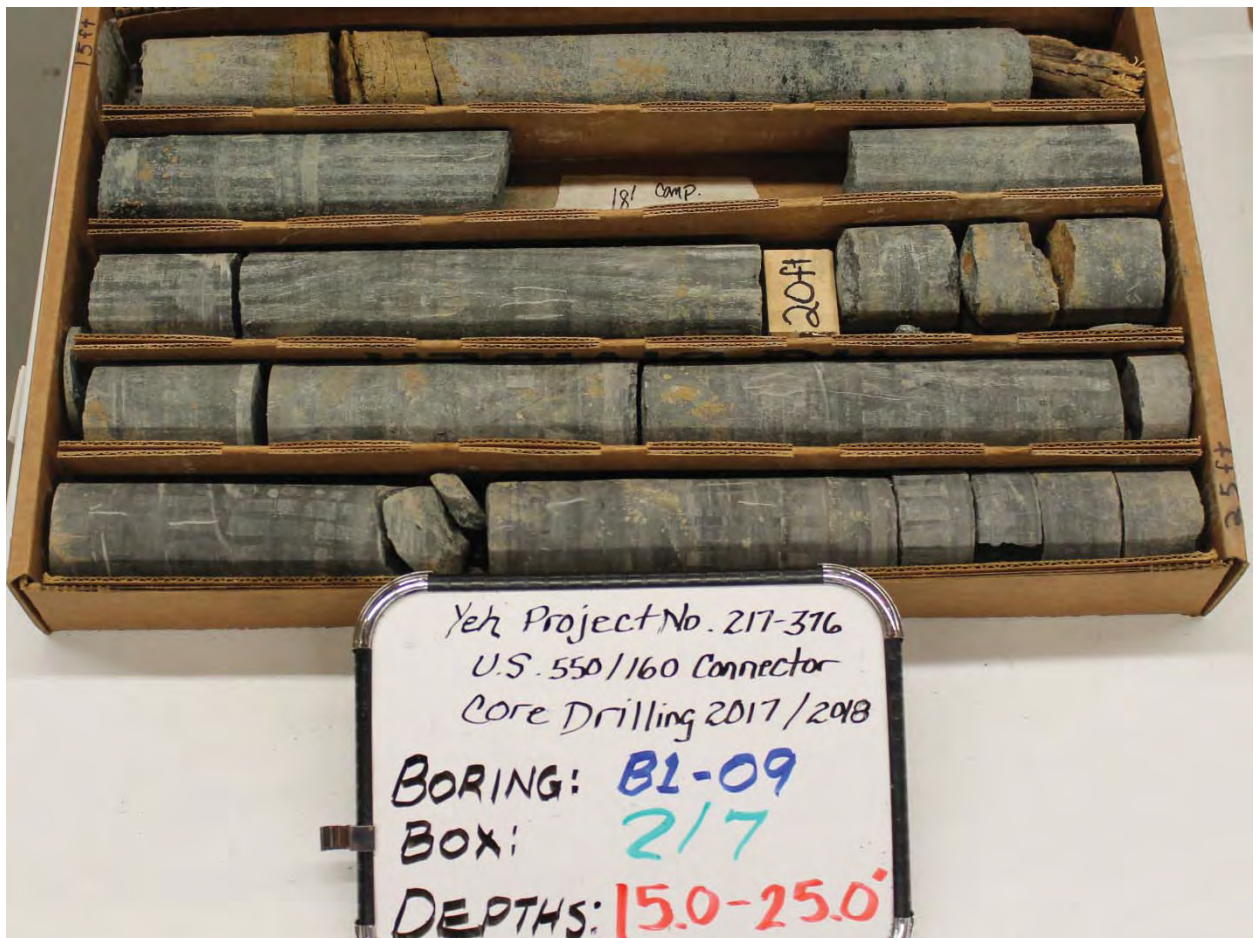 15ft
18' Comp.
20ft
25ft
Yeh Project No. 217-376
U.S. 550/160 Connector
Core Drilling 2017/2018
BORING: B1-09
BOX: 2/7
DEPTHS: 15.0-25.0'